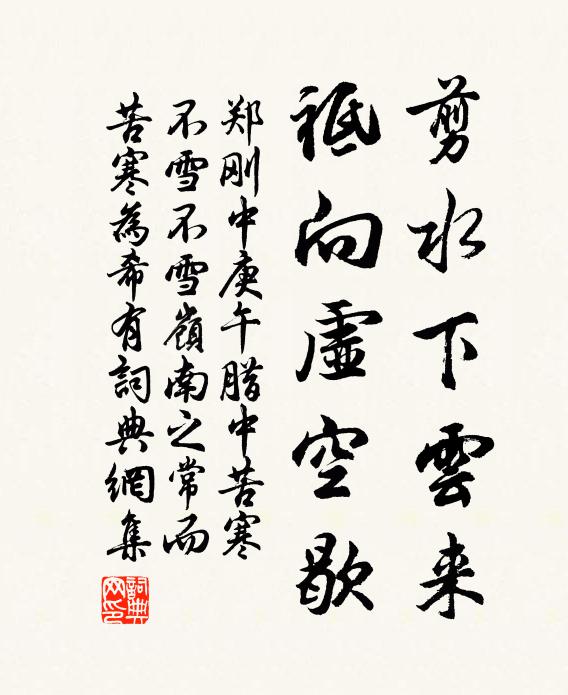 剪水下雲来
祗向虛空歇
郑刚中庚午腊中苦寒
不雪不雪嶺南之常而
苦寒為希有詞典網集
詞典
网印